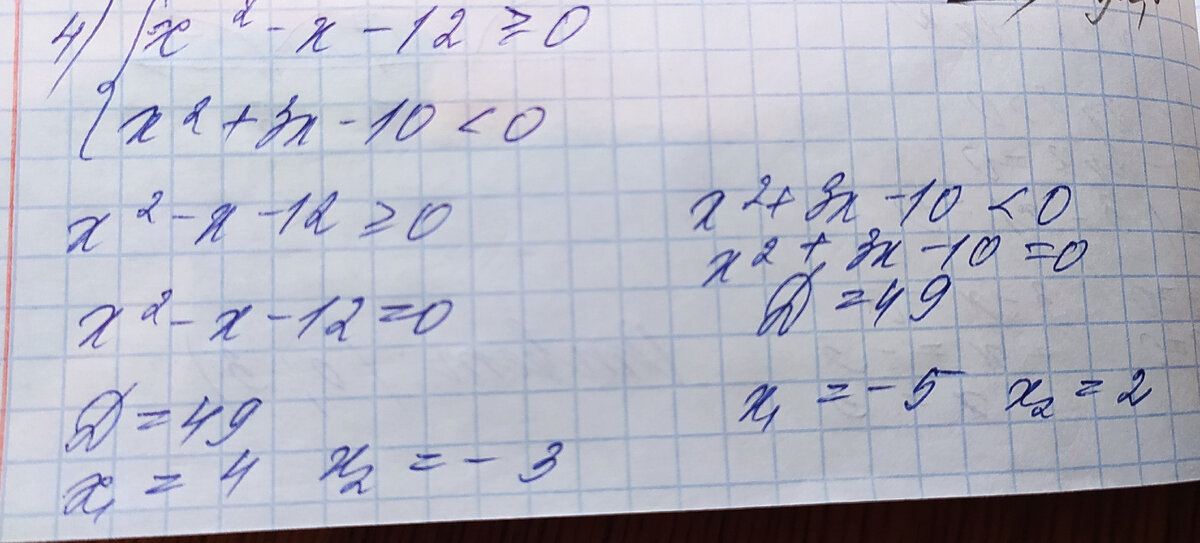 4) { x² - x - 12 ≥ 0
x² + 3x - 10 < 0
x² - x - 12 ≥ 0
x² - x - 12 = 0
D = 49
x₁ = 4 x₂ = - 3
x² + 3x - 10 < 0
x² + 3x - 10 = 0
D = 49
x₁ = - 5 x₂ = 2